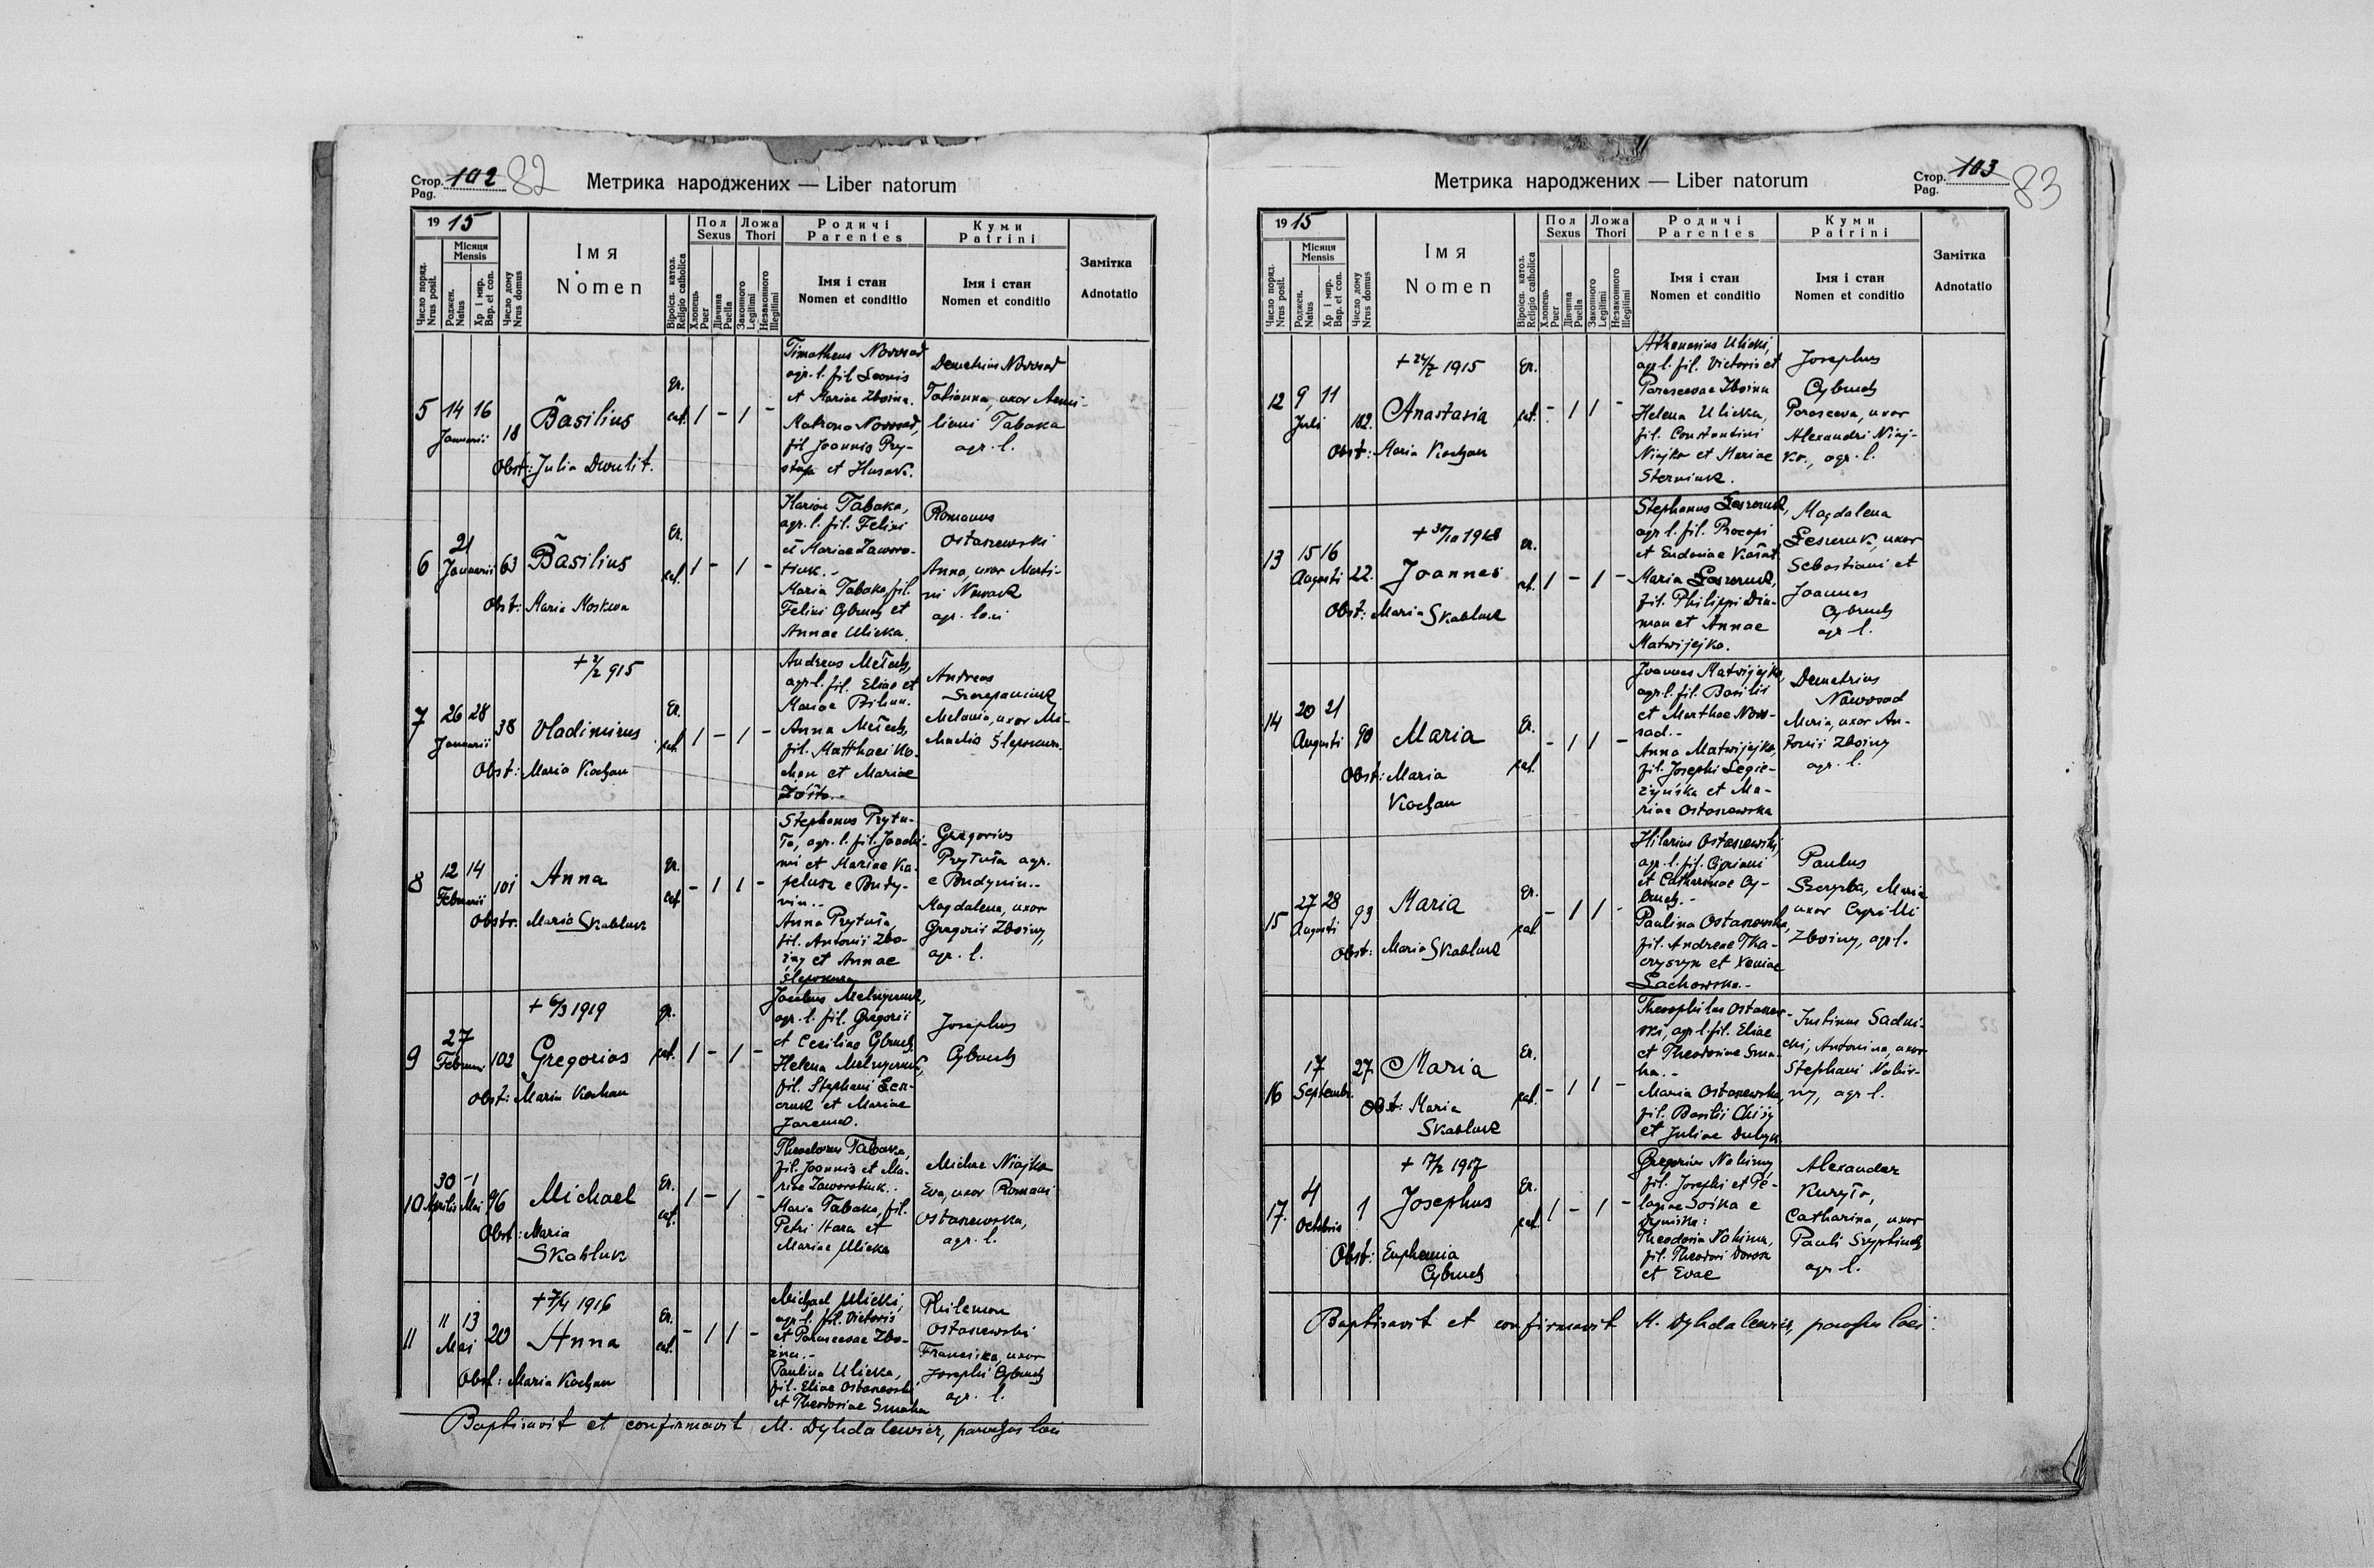 Стор. 102 82
Pag.
Метрика народжених — Liber natorum
1915
Число поряд. Nrus posit.
Місяця Mensis
Роджен. Natus
Хр і мир. Bap. et con.
Число дому Nrus domus
Імя
Nomen
Віроісп. катол. Religio catholica
Пол Sexus
Хлопець Puer
Дівчина Puella
Ложа Thori
Законного Legitimi
Незаконного Illegitimi
Родичі Parentes
Імя і стан
Nomen et conditio
Куми Patrini
Імя і стан
Nomen et conditio
Замітка
Adnotatio
5 14 16 Januarii 18 Basilius
Gr. cat. 1 - 1 -
Obst: Julia Dwulit.
Timotheus Nowosad
agr. l. fil Leonis
et Mariae Zboina.
Matrona Nowosad,
fil Joannis Pry-
stupa et Husak.
Demetrius Nowosad
Tatianna, uxor Aemi-
liani Tabaka
agr. l.
6 21 Januarii 63 Basilius
Gr. cat. 1 - 1 -
Obst: Maria Moskwa
Tabaka,
agr. l. fil. Felixi
et Mariae Zaworo-
tiuk.-
Maria Tabaka, fil.
Felixi Cybruch et
Annae Ulicka.
Romanus
Ostaszewski
Anna, uxor Marti-
ni Nowack
agr. loci
7 26 28 Januarii 38 Vladimirus
+ 2/2 915
Gr. cat. 1 - 1 -
Obst: Maria Kochan
Andreas Mełech,
agr. l. fil. Eliae et
Mariae Bihun.
Anna Mełech,
fil. Matthaei Ko-
chan et Mariae
Andreas
Szczepaniuk
Melania, uxor Mi-
chaelis Ślepokura
8 12 14 Februarii 101 Anna
Gr. cat. - 1 1 -
Obstr. Maria Skabluk
Stephanus Prytu-
ła, agr. l. fil. Joachi-
mi et Mariae Ka-
pelusz e Budy-
nin.-
Anna Prytuła,
fil. Antonii Zbo-
iny et Annae
Ślepokura
Gregorius
Prytuła agr.
e Budynin.-
Magdalena, uxor
Gregorii Zboiny,
agr. l.
9 27 Februarii 102 Gregorius
+ 6/3 1919
gr. cat. 1 - 1 -
Obst: Maria Kochan
Jacobus Melnyczuk,
agr. l. fil. Gregorii
et Ceciliae Cybruch
Helena Melnyczuk,
fil. Stephani Lesz-
czuk et Mariae
Jaremko.
Josephus
Cybruch
10 30 Aprilis -1 Mai 96 Michael
Gr. cat. 1 - 1 -
Obst: Maria
Skabluk
Theodorus Tabaka,
fil. Joannis et Ma-
riae Zaworotiuk.-
Maria Tabaka, fil.
Petri Hara et
Mariae Ulicka
Michae Niajko
Eva, uxor Romani
Ostaszewska,
agr. l.
11 11 13 Mai 20 Anna
+ 7/4 1916
Gr. cat. - 1 1 -
Obst: Maria Kochan
Michael Ulicki,
agr. l. fil. Victoris
et Parascevae Zbo-
ina.-
Paulina Ulicka,
fil. Eliae Ostaszewski
et Theodosiae Smaha
Philemon
Ostaszewski
Franciska, uxor
Josephi Cybruch
agr. l.
Baptisavit et confirmavit M. Dyhdalewicz, parochus loci
Стор. 103 83
Pag.
Метрика народжених — Liber natorum
1915
Число поряд. Nrus posit.
Місяця Mensis
Роджен. Natus
Хр і мир. Bap. et con.
Число дому Nrus domus
Імя
Nomen
Віроісп. катол. Religio catholica
Пол Sexus
Хлопець Puer
Дівчина Puella
Ложа Thori
Законного Legitimi
Незаконного Illegitimi
Родичі Parentes
Імя і стан
Nomen et conditio
Куми Patrini
Імя і стан
Nomen et conditio
Замітка
Adnotatio
12 9 11 Juli 102. Anastasia
1915
Gr. cat. - 1 1 -
Obst: Maria Kochan
Athanasius Ulicki,
agr l. fil. Victoris et
Parascevae Zboina
Helena Ulicka,
fil. Constantini
Niajko et Mariae
Sterniuk.
Josephus
Cybruch
Parasceva, uxor
Alexandri Niaj-
ko, agr. l.
13 15 16 Augusti 22. Joannes
gr. cat. 1 - 1 -
Obst: Maria Skabluk
Stephanus Leszczuk,
agr l. fil. Procopi
et Eudoxiae
Maria Leszczuk,
fil. Philippi Diu-
man et Annae
Matwijejko.
Magdalena
Leszczuk, uxor
Sebastiani et
Joannes
Cybruch
agr l.
14 20 21 Augusti 90 Maria
Gr. cat. - 1 1 -
Obst: Maria
Kochan
Joannes Matwijejko,
agr l. fil. Basilii
et Marthae Nowo-
sad.-
Anna Matwijejko,
fil. Josephi Legie-
żyńska et Ma-
riae Ostaszewska
Demetrius
Nowosad
Maria, uxor An-
tonii Zboiny
agr. l.
15 27 28 Augusti 93 Maria
Gr. cat. - 1 1 -
Obst: Maria Skabluk
Hilarius Ostaszewski,
agr. l. fil. Cipriani
et Catharinae Cy-
bruch.-
Paulina Ostaszewska,
fil. Andreae Tka-
czyszyn et Xeniae
Lachowska.-
Paulus
Szczyrba, Maria
uxor Cyrilli
Zboiny, agr l.
16 17 Septembr. 27 Maria
Gr. cat. - 1 1 -
Obst: Maria
Skabluk
Theophilus Ostaszew-
ski, agr l. fil. Eliae
et Theodosiae Sma-
ha.-
Maria Ostaszewska,
fil. Basilii Chiży
et Juliae Dubyk
Justinus Sadni-
cki, Antonina, uxor
Stephani Nahir-
ny, agr l.
17. 4 Octobris 1 Josephus
1917
Gr. cat. 1 - 1 -
Obst: Euphemia
Cybruch
Gregorius Nahirny,
fil. Josephi et Pe-
lagiae Sojka e
Theodosia Nahirna,
fil. Theodori Dorosz
et Evae
Alexander
Kuryło,
Catharina, uxor
Pauli
agr l.
Baptisavit et confirmavit M. Dyhdalewicz, parochus loci.